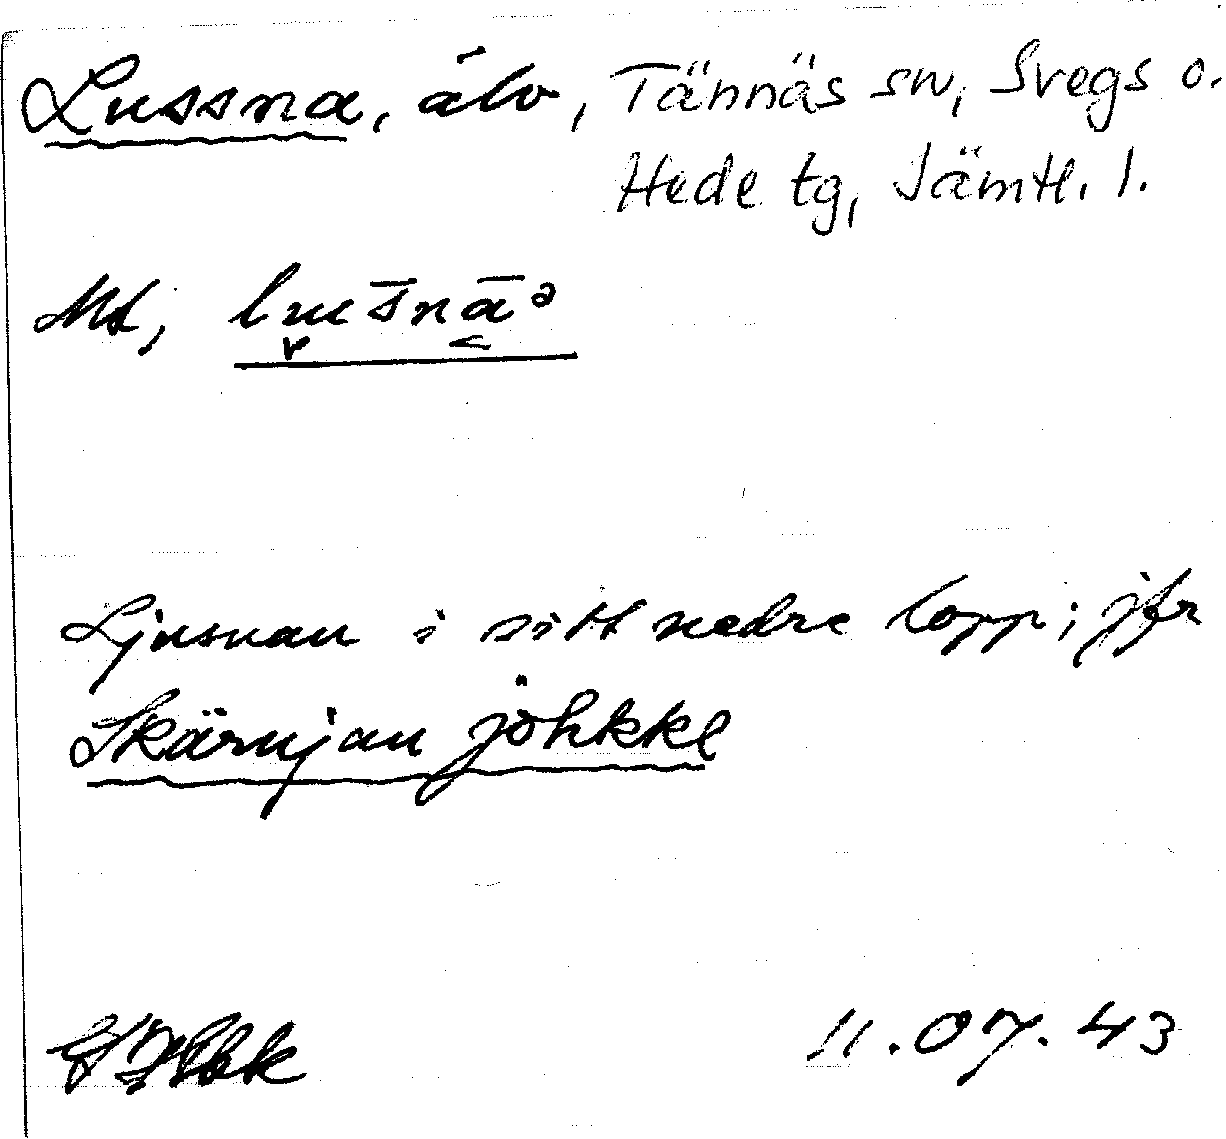 Lussna, älv, Tännäs sn, Svegs o.
Hede tg, Jämtl. l.
Ljusnan i sitt nedre lopp; jfr
Skärvjan jöhkke
11.07.43